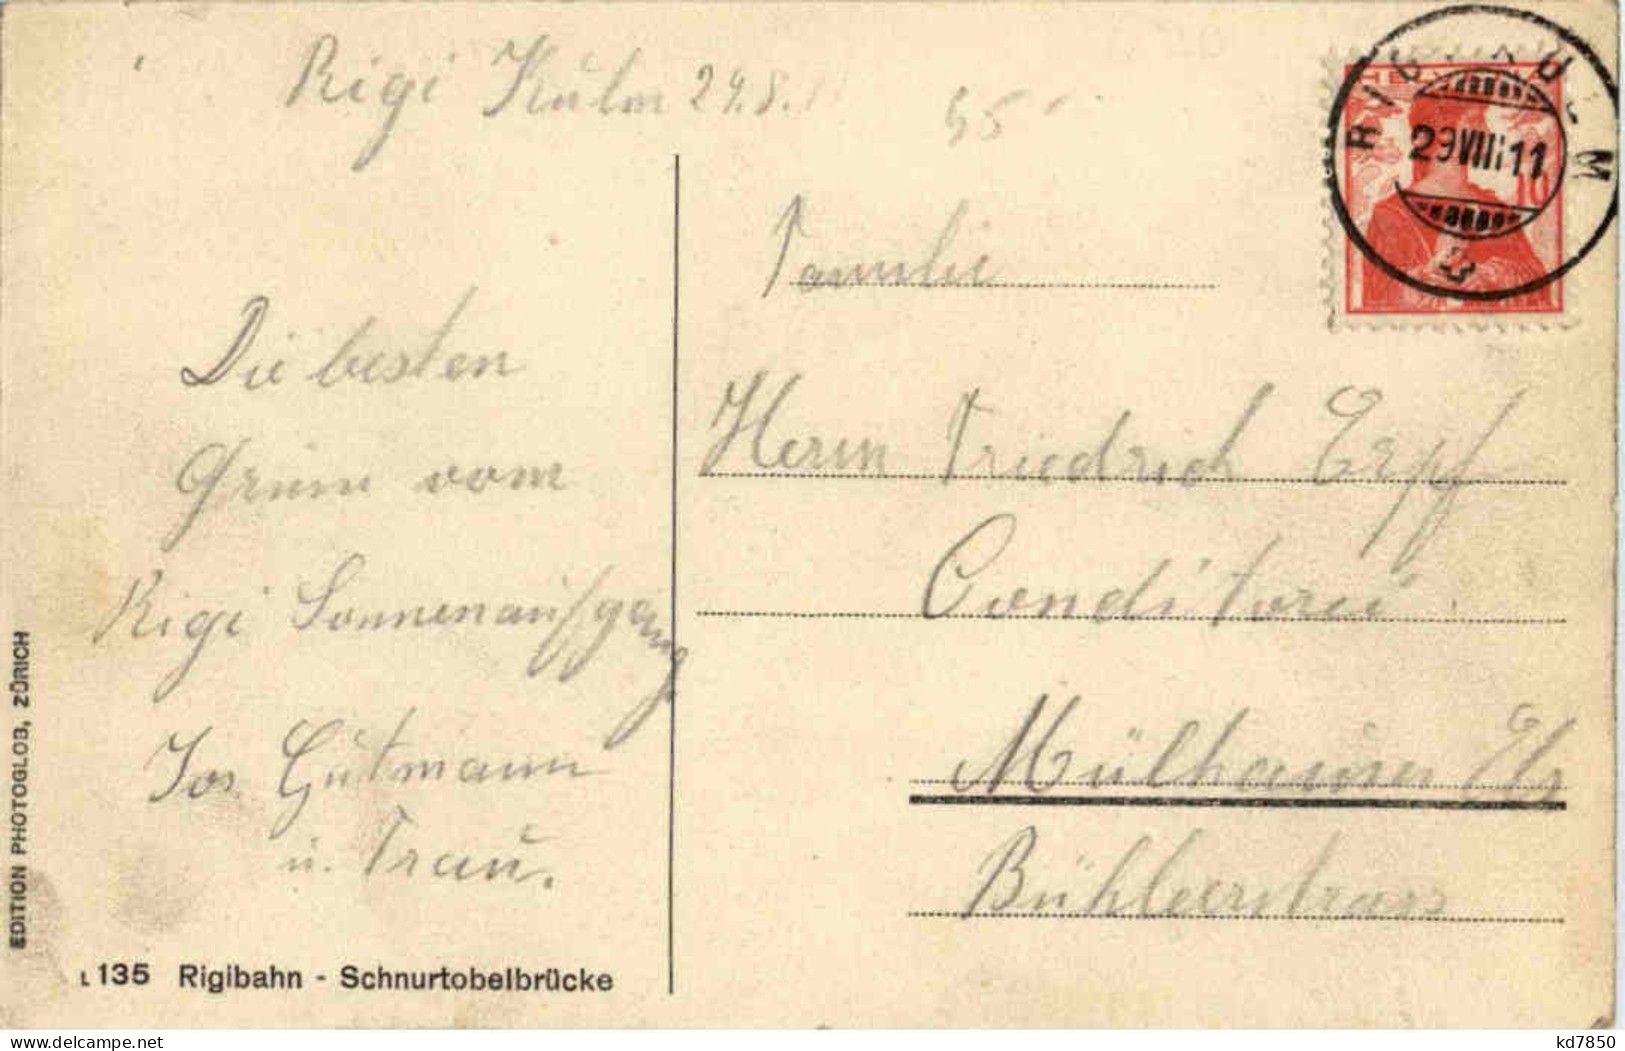 Rigi Kulm 29.8.11
55
HELVETIA
10
RIGI KULM
29 VIII 11
Familie
Herrn Friedrich Erpf
Conditorei
Mülhausen Els
Bühlerstrass
Die besten
Grüsse vom
Rigi Sonnenaufgang
Jos. Gutmann
u. Frau.
EDITION PHOTOGLOB, ZÜRICH
L 135 Rigibahn - Schnurtobelbrücke
delcampe.net
kd7850